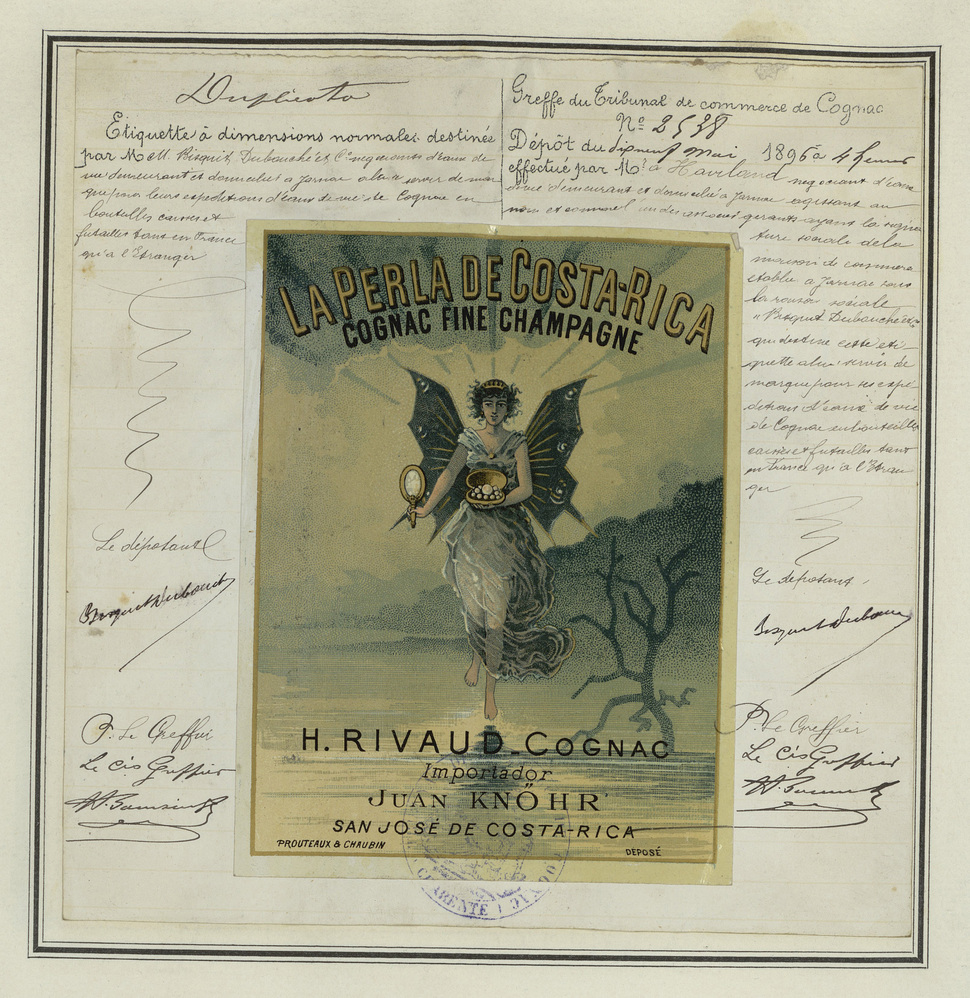 Duplicata
Etiquette à dimensions normales destinée
par MM. Bisquit Dubouché et Cie négociants d'eaux de
vie demeurant et domiciliés à Jarnac à servir de mar
que pour leurs expéditions d'eaux de vie de Cognac en
bouteilles caisses et
futailles tant en France
qu'à l'Etranger
Le déposant
Bisquit Dubouché
P. Le Greffier
Le Cis Greffier
Greffe du Tribunal de commerce de Cognac
No 2538
Dépôt du dix neuf Mai 1896 à 4 heures
effectué par Mr Haviland négociant d'eaux
de vie demeurant et domicilié à Jarnac agissant au
nom et comme l'un des associés gérants ayant la signa
ture sociale de la
maison de commerce
établie à Jarnac sous
la raison sociale
"Bisquit Dubouché et Cie"
qui destine cette éti
quette à lui servir de
marque pour ses expé
ditions d'eaux de vie
de Cognac en bouteilles
caisses et futailles tant
en France qu'à l'Etran
ger
Le déposant,
Bisquit Dubouché
P. Le Greffier
Le Cis Greffier
LA PERLA DE COSTA-RICA
COGNAC FINE CHAMPAGNE
H. RIVAUD_COGNAC
Importador
JUAN KNÖHR
SAN JOSÉ DE COSTA-RICA
PROUTEAUX & CHAUBIN
DEPOSÉ
CHARENTE